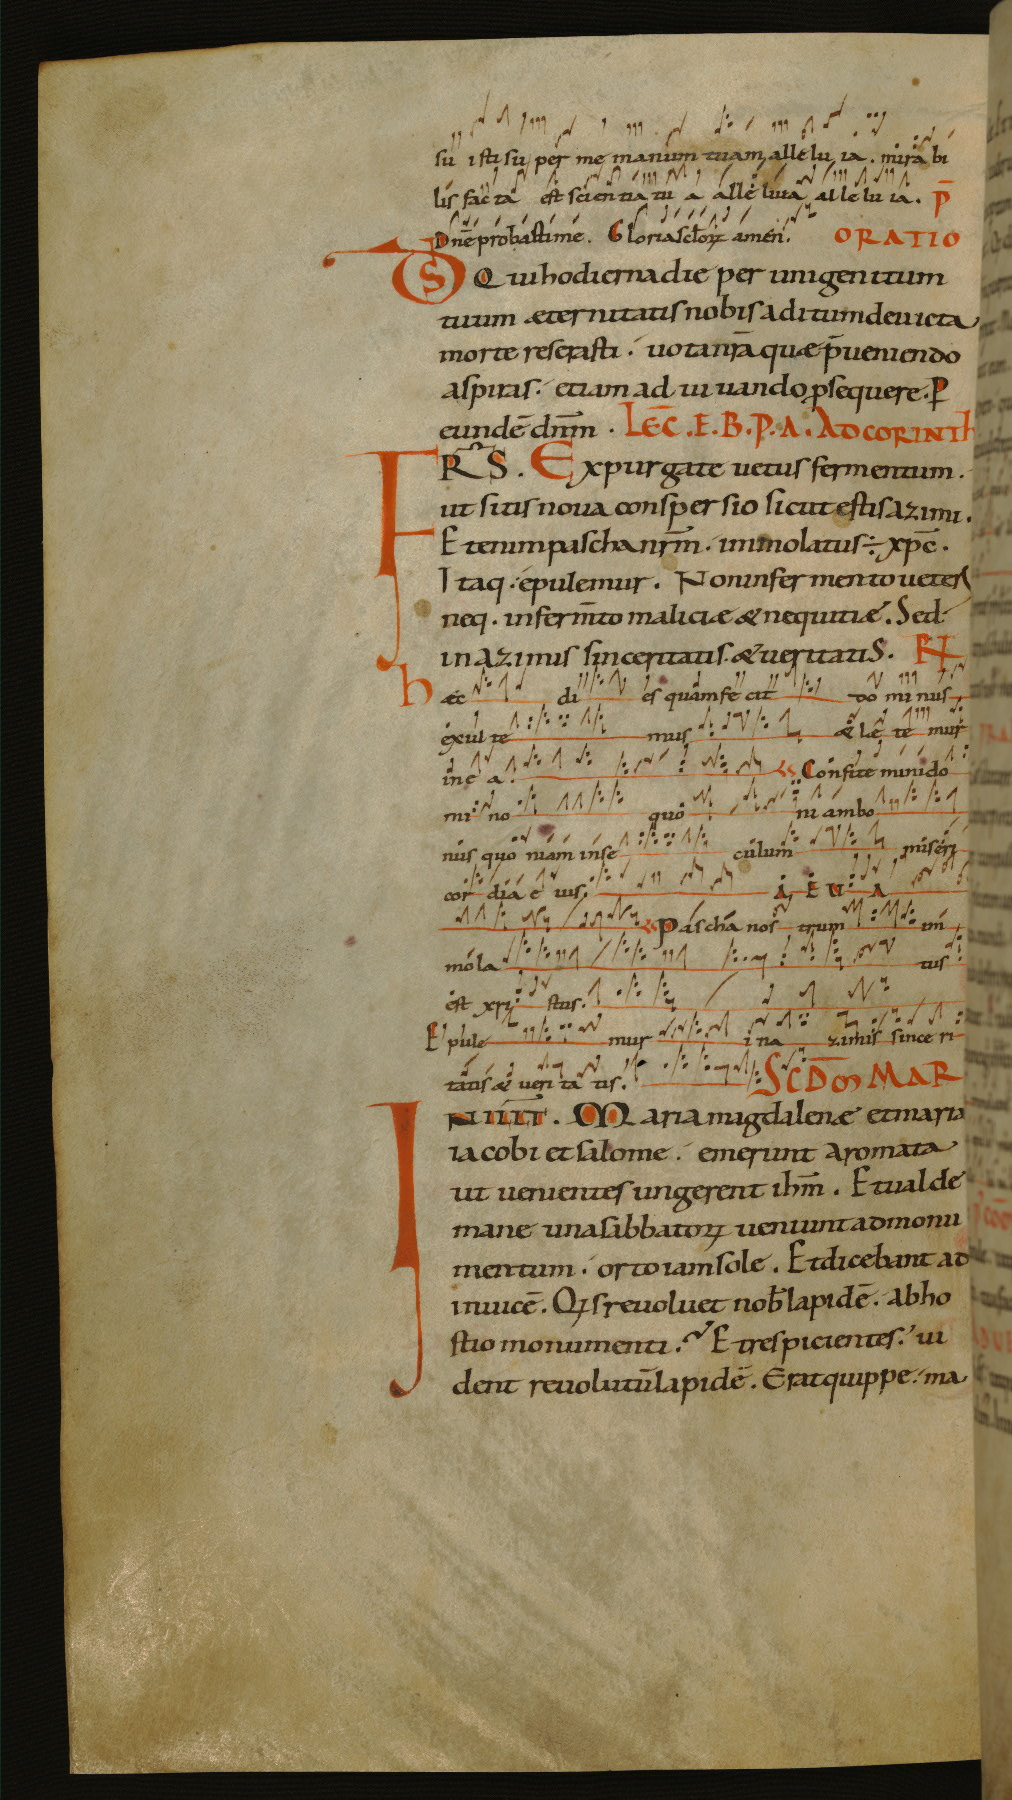 su isti su per me manum tuam, alle lu ia. mira bi
lis fac ta est scientia tu a alle luia al le lu ia. p̄
Dn̄e probasti me. Gloria sclorꝝ amen. ORATIO
DS Qui hodierna die per unigenitum
tuum æternitatis nobis aditum deuicta
morte reserasti. uota nr̄a quæ p̄ueniendo
aspiras. etiam adiuuando ꝓsequere. P
eundē dnm̄. LEC̄. E. B. P. A. AD CORINTH
FRS̄. Expurgate uetus fermentum.
ut sitis noua conspersio sicut estis azimi.
Etenim pascha nrm̄. immolatus ÷ xpc̄.
Itaq. epulemur. Non in fermento ueteri
neq. in ferm̄to maliciæ & nequitiæ. Sed
in azimis sinceritatis. & ueritatis. R̄
hæc di es quam fe cit do mi nus
exul te mus & le te mur
in e a. Confitemini do
mi no quo ni am bo
nus quo niam in se culum miseri
cor dia e ius. A E U A
Pascha nos trum im
mola tus
est xri stus.
Epule mur in a zimis since ri
tatis & ueri ta tis. SCD̄M MAR
IN illT̄. Maria magdalenæ et maria
iacobi et salome. emerunt aromata
ut uenientes ungerent ihm̄. Et ualde
mane una sabbatorꝝ ueniunt ad monu
mentum. orto iam sole. Et dicebant ad
inuicē. Qis reuoluet nob̄ lapidē. ab ho
stio monumenti. Et respicientes. ui
dent reuolutū lapidē. Erat quippe. ma